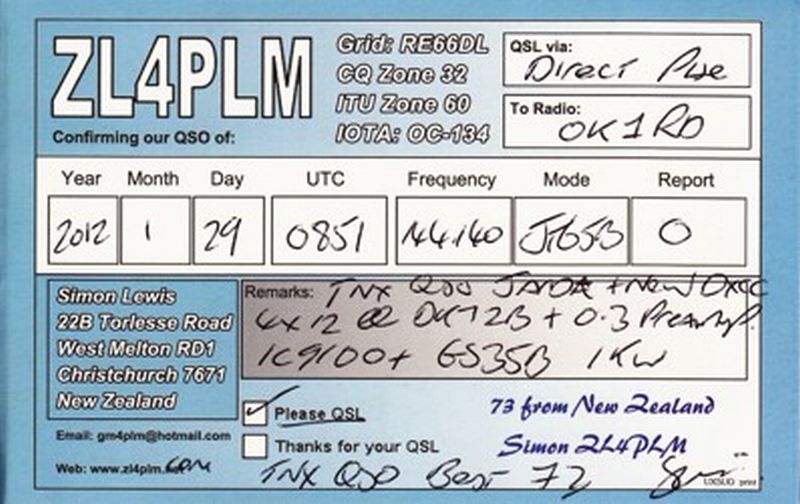 ZL4PLM
Confirming our QSO of:
Grid: RE66DL
CQ Zone 32
ITU Zone 60
IOTA: OC-134
QSL via:
Direct Pse
To Radio:
OK1RD
Year Month Day UTC Frequency Mode Report
2012 1 29 0851 144.140 JT65B O
Simon Lewis
22B Torlesse Road
West Melton RD1
Christchurch 7671
New Zealand
Remarks: TNX QSO Janda + New DXCC
4x12 el DK7ZB + 0.3 Preamp.
IC9100 + GS35B 1KW
Please QSL
Thanks for your QSL
73 from New Zealand
Simon ZL4PLM
Email: gm4plm@hotmail.com
Web: www.zl4plm.com
TNX QSO Best 73
UX5UO print